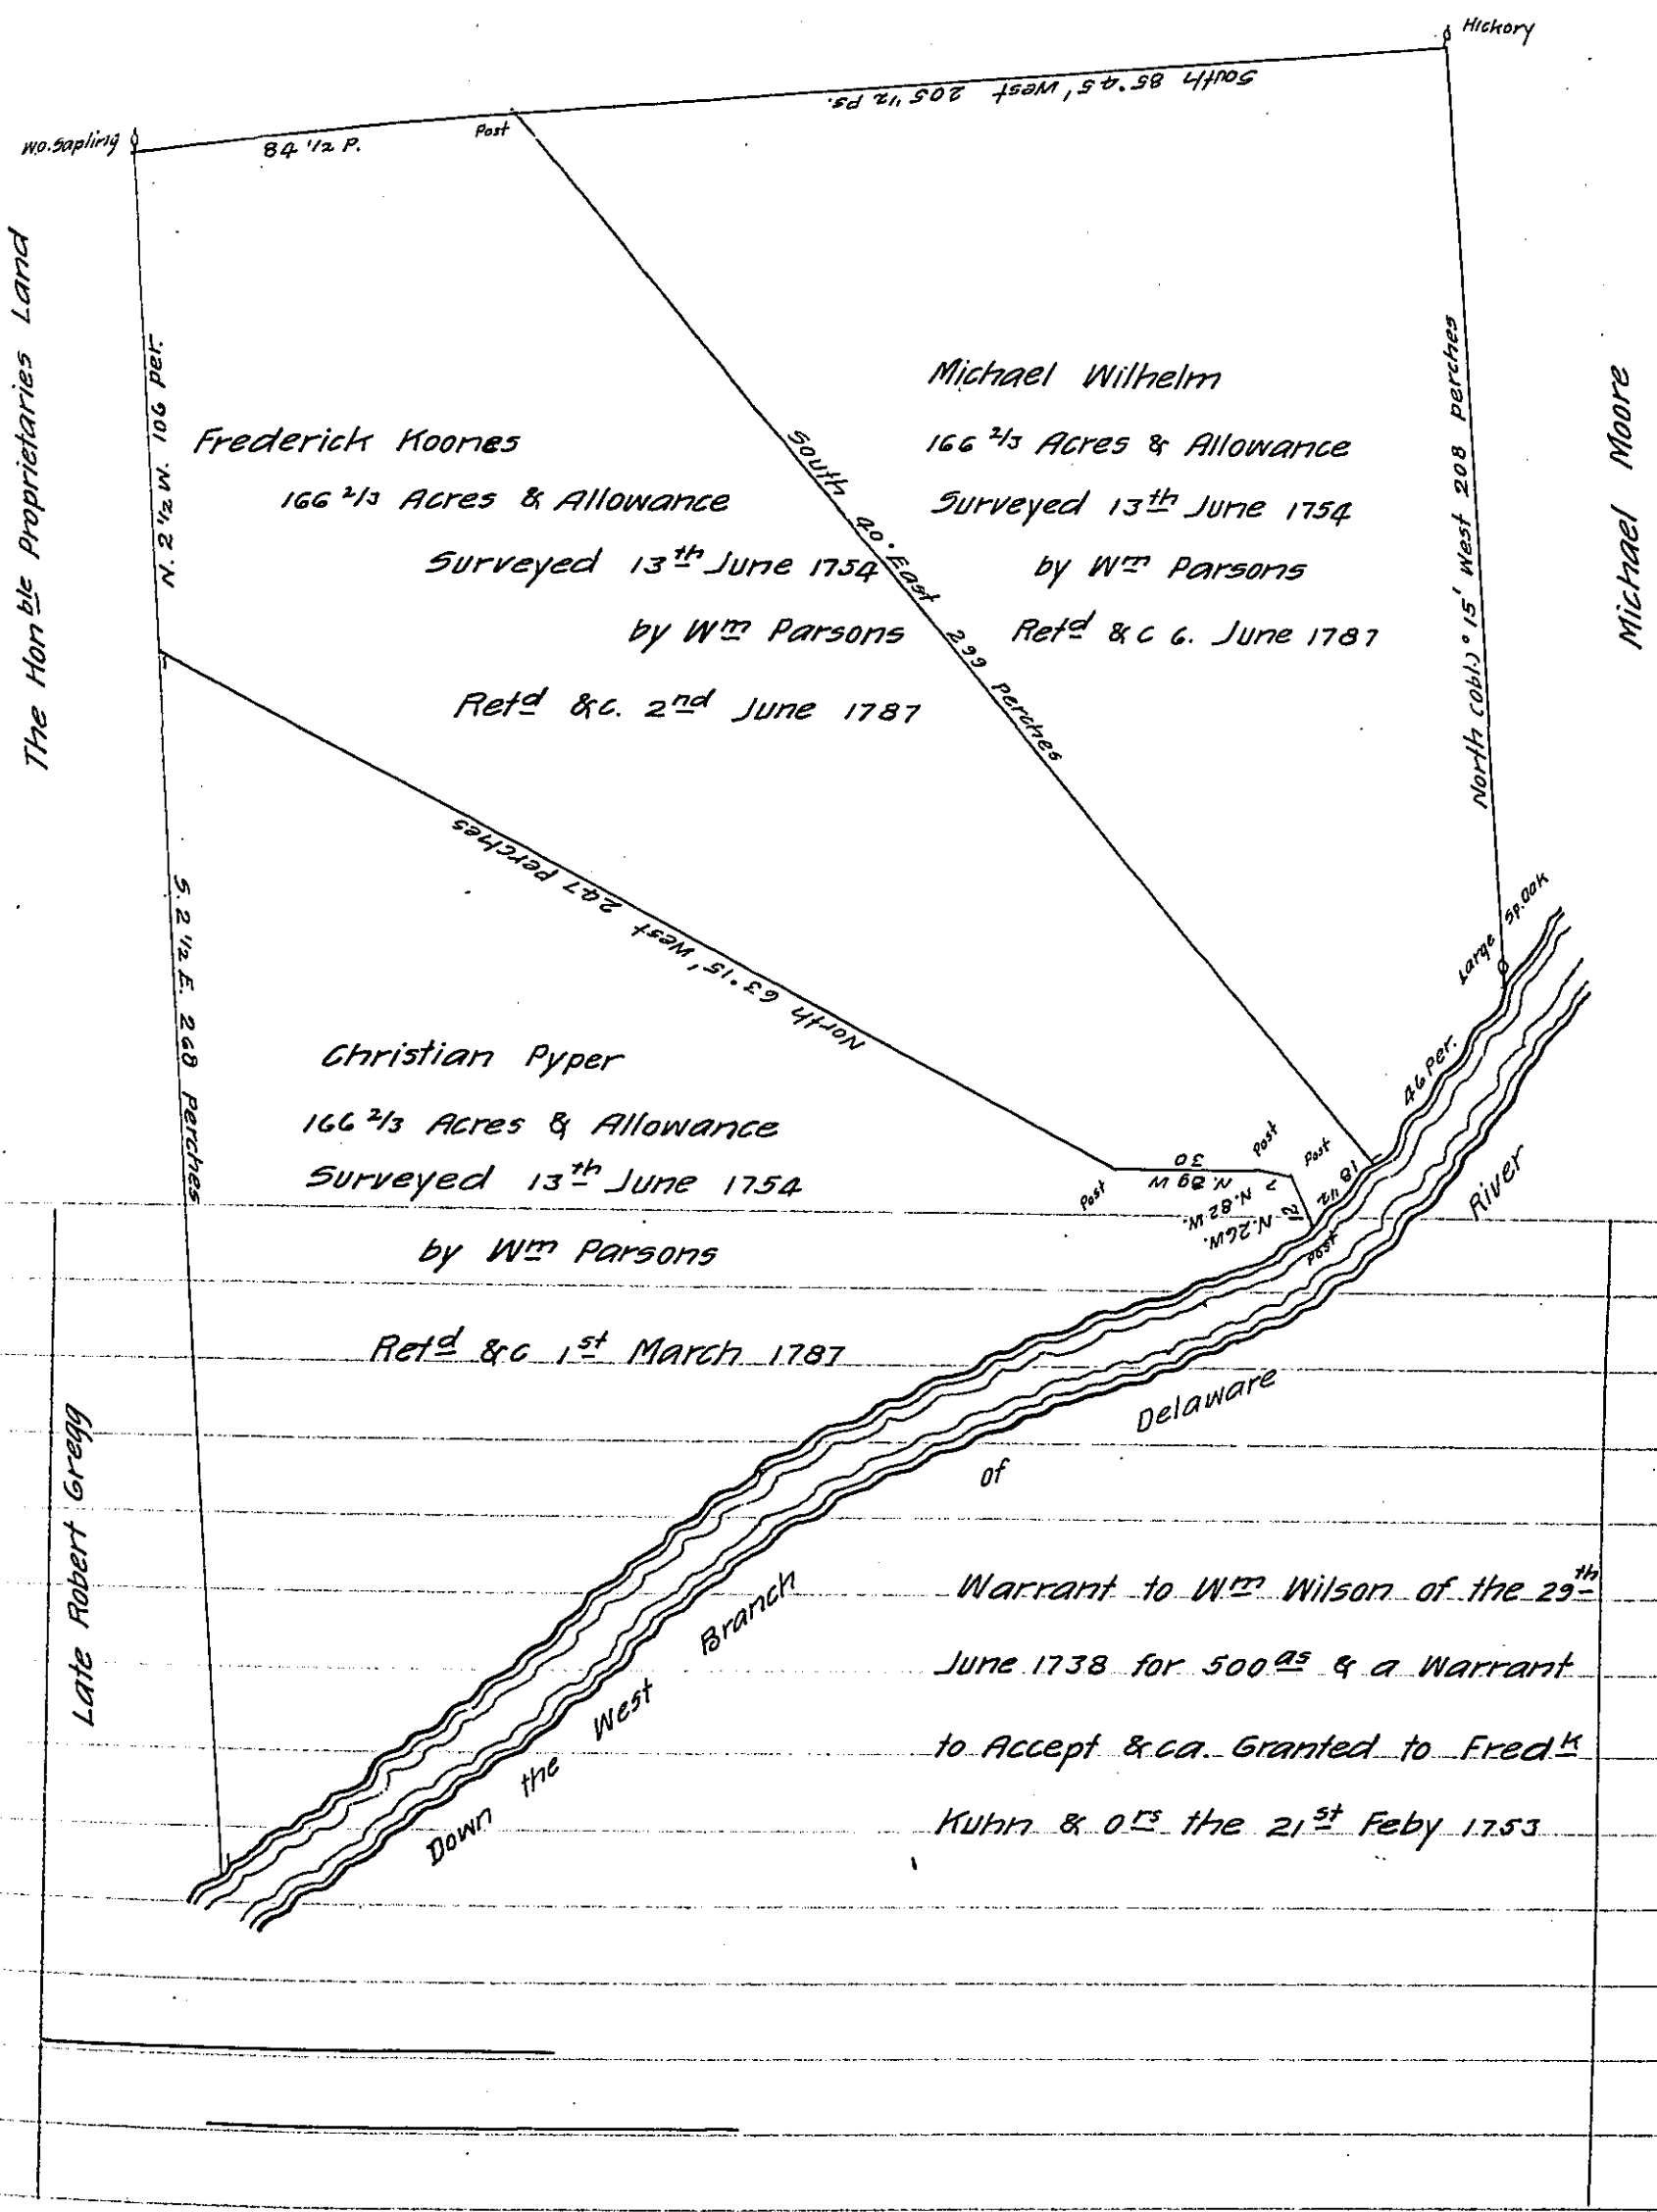 Hickory
South 85°45' West 205 1/2 Ps.
W.O. Sapling
84 1/2 P.
Post
The Hon ble Proprietaries Land
N. 2 1/2 W. 106 per.
Frederick Koones
166 2/3 Acres & Allowance
Surveyed 13th June 1754
by Wm Parsons
Retd &c. 2nd June 1787
South 40° East 299 Perches
Michael Wilhelm
166 2/3 Acres & Allowance
Surveyed 13th June 1754
by Wm Parsons
Retd &c 6. June 1787
North (obl.) ° 15' West 208 Perches
Michael Moore
North 63°15' West 247 perches
S. 2 1/2 E. 268 Perches
Christian Pyper
166 2/3 Acres & Allowance
Surveyed 13th June 1754
by Wm Parsons
Retd &c 1st March 1787
Large Sp. Oak
46 Per.
Post
Post
18 1/2
Post
N. 89 W
30
7
N. 82 W.
12
N. 26 W.
Post
Late Robert Gregg
Down the West Branch of Delaware River
Warrant to Wm Wilson of the 29th
June 1738 for 500 as & a Warrant
to Accept &ca. Granted to Fredk
Kuhn & Ors the 21st Feby 1753